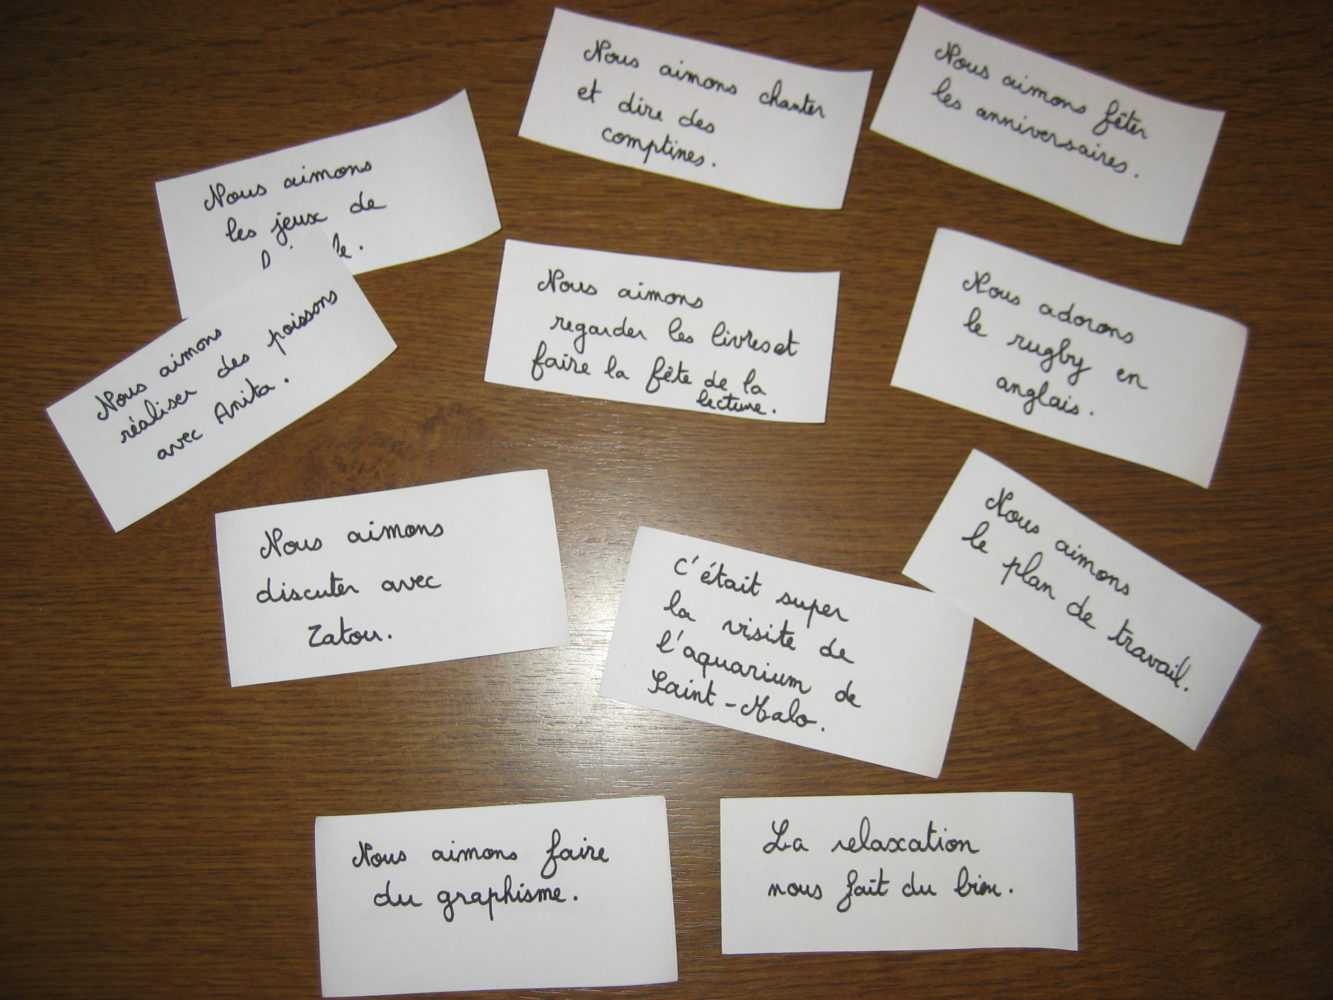 Nous aimons chanter
et dire des
comptines.
Nous aimons fêter
les anniversaires.
Nous aimons
les jeux de
Nous aimons
réaliser des poissons
avec Anita.
Nous aimons
regarder les livres et
faire la fête de la
lecture.
Nous adorons
le rugby en
anglais.
Nous aimons
discuter avec
Zatou.
c'était super
la visite de
l'aquarium de
Saint-Malo.
Nous aimons
le plan de travail.
Nous aimons faire
du graphisme.
La relaxation
nous fait du bien.